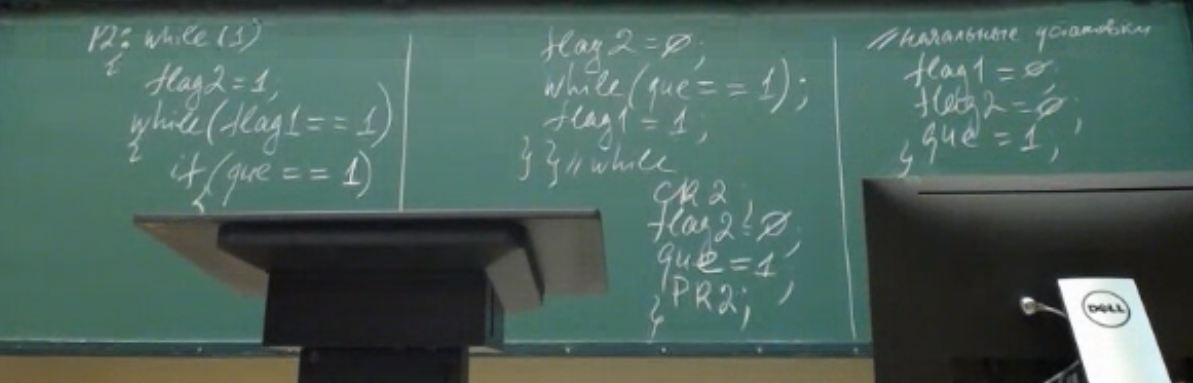 P2: while(1)
{
flag2=1;
while(flag1==1)
{
if(que==1)
{
flag2=Ø;
while(que==1);
flag1=1;
}}//while
CR2;
flag2=Ø;
que=1;
PR2;
}
//начальные установки
flag1=Ø;
flag2=Ø;
que=1;
}
DELL